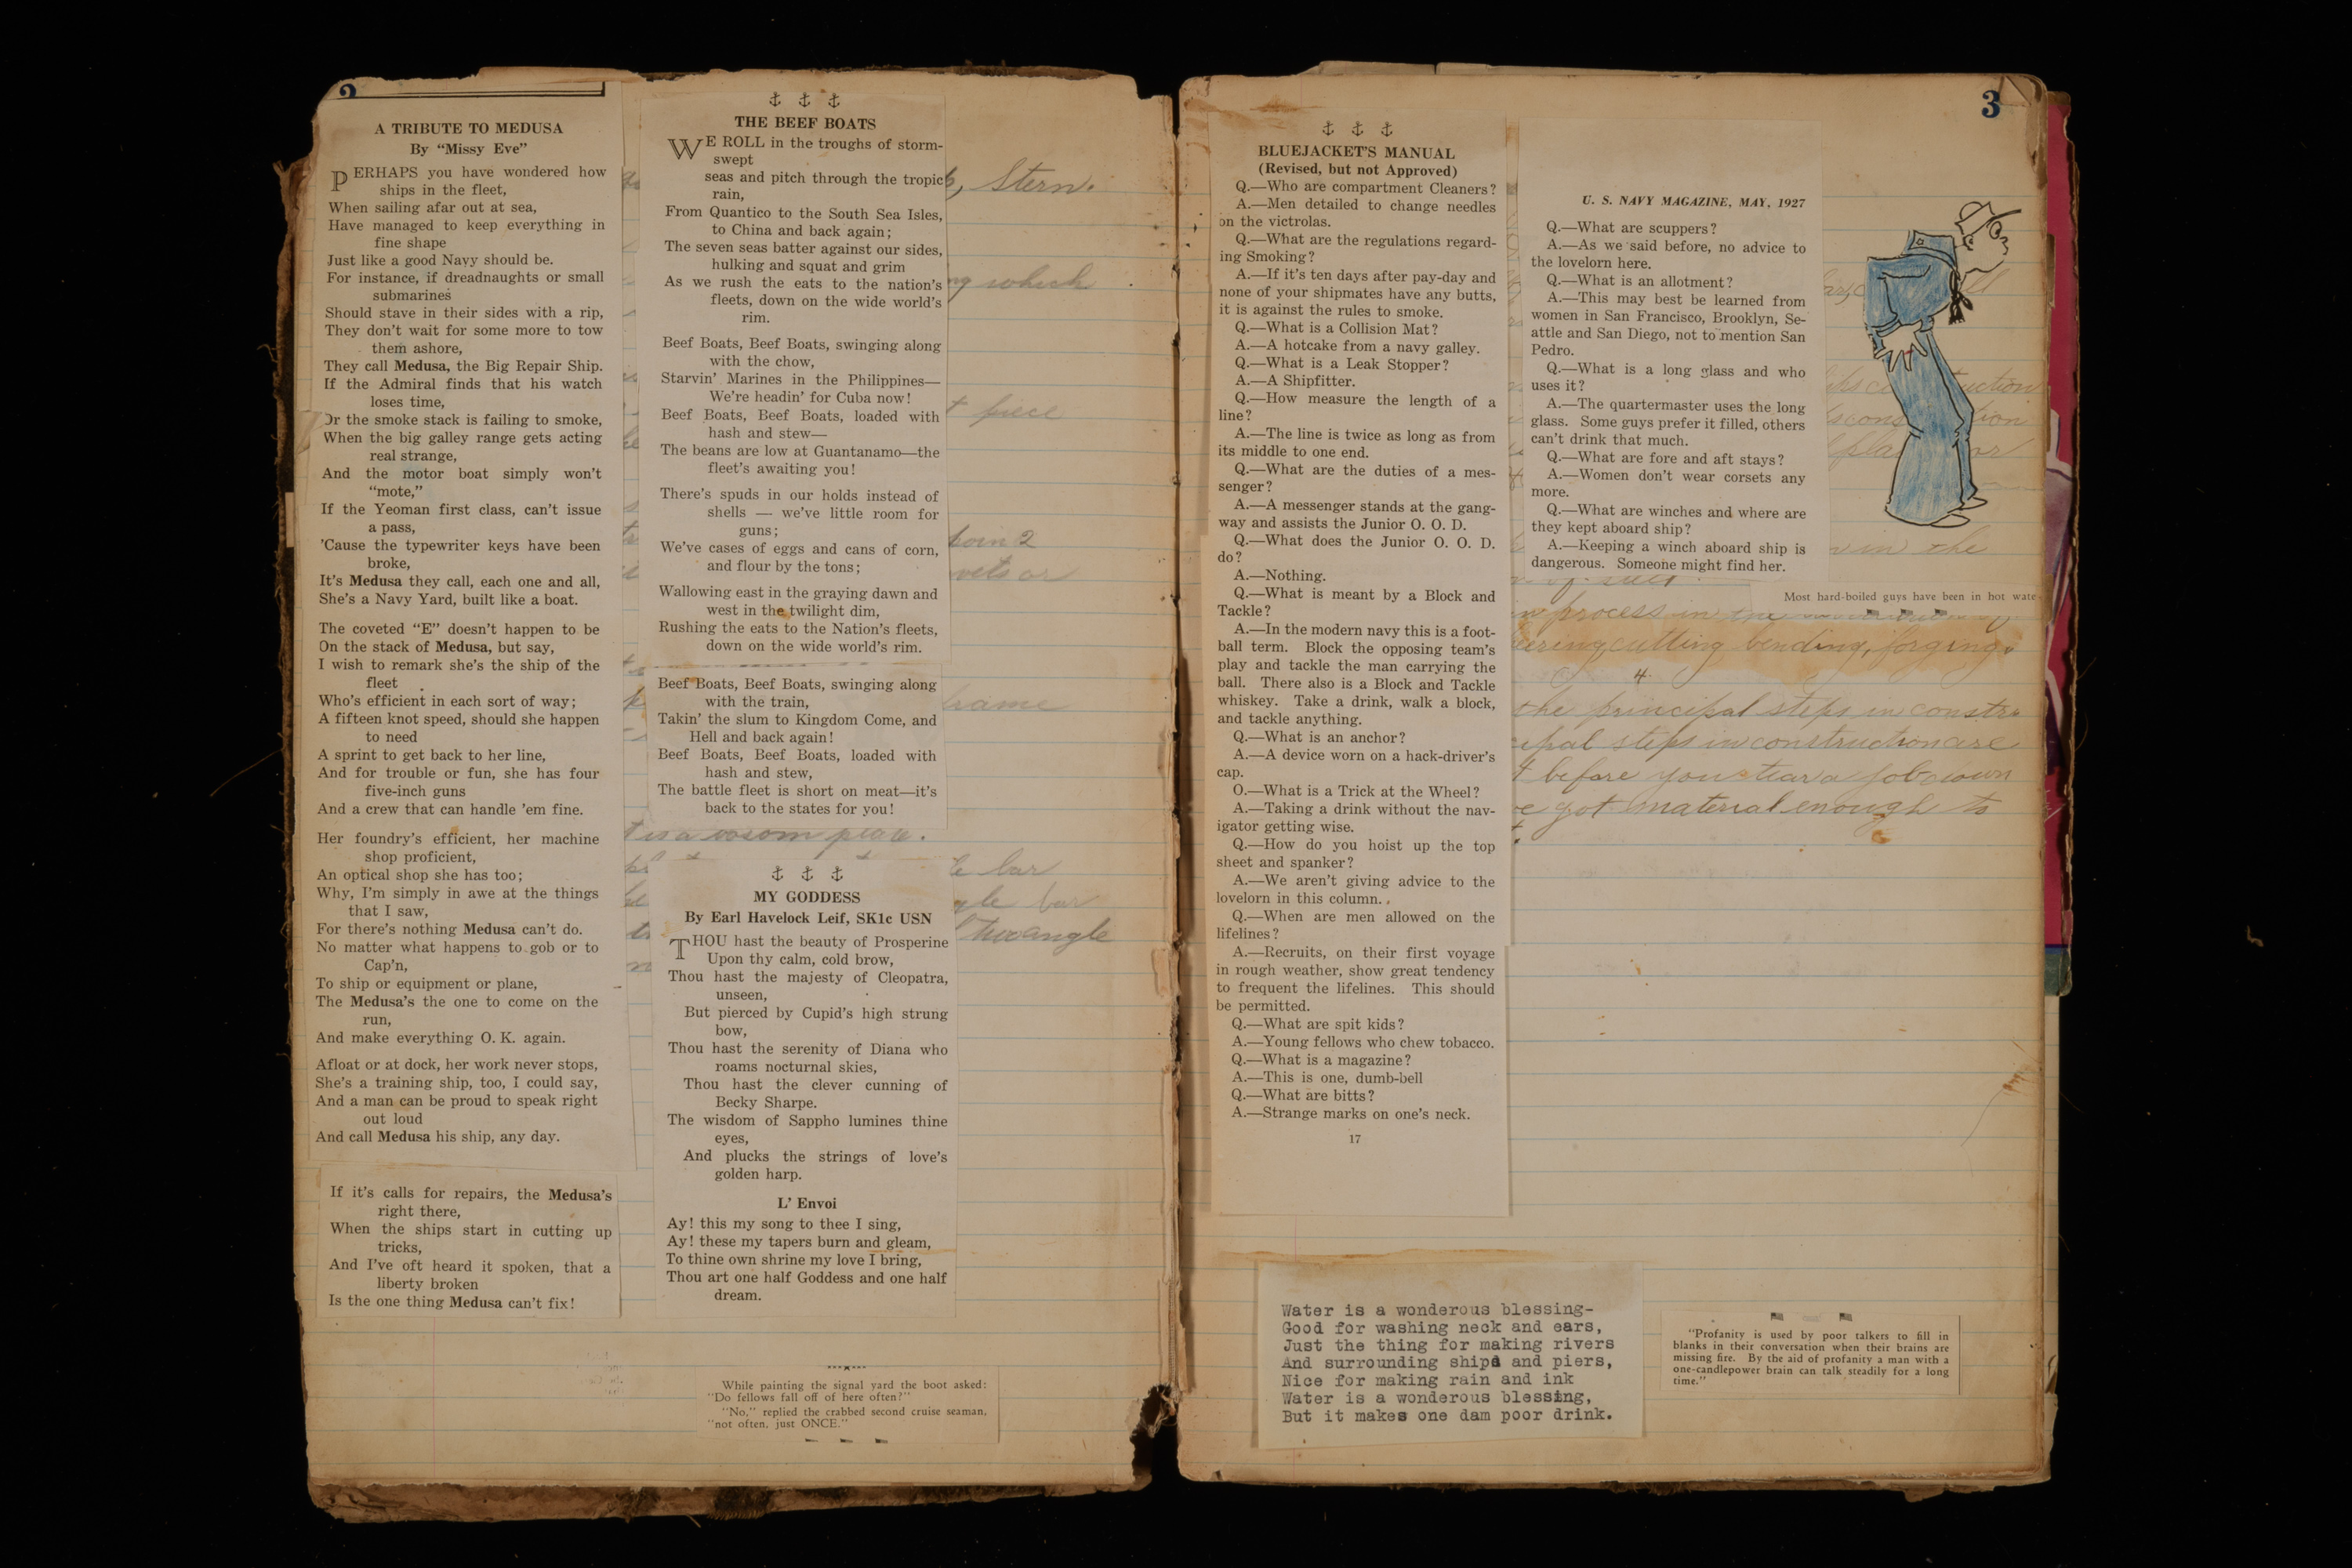 2
A TRIBUTE TO MEDUSA
By “Missy Eve”
PERHAPS you have wondered how
ships in the fleet,
When sailing afar out at sea,
Have managed to keep everything in
fine shape
Just like a good Navy should be.
For instance, if dreadnaughts or small
submarines
Should stave in their sides with a rip,
They don’t wait for some more to tow
them ashore,
They call Medusa, the Big Repair Ship.
If the Admiral finds that his watch
loses time,
Or the smoke stack is failing to smoke,
When the big galley range gets acting
real strange,
And the motor boat simply won’t
“mote,”
If the Yeoman first class, can’t issue
a pass,
’Cause the typewriter keys have been
broke,
It’s Medusa they call, each one and all,
She’s a Navy Yard, built like a boat.
The coveted “E” doesn’t happen to be
On the stack of Medusa, but say,
I wish to remark she’s the ship of the
fleet
Who’s efficient in each sort of way;
A fifteen knot speed, should she happen
to need
A sprint to get back to her line,
And for trouble or fun, she has four
five-inch guns
And a crew that can handle ’em fine.
Her foundry’s efficient, her machine
shop proficient,
An optical shop she has too;
Why, I’m simply in awe at the things
that I saw,
For there’s nothing Medusa can’t do.
No matter what happens to gob or to
Cap’n,
To ship or equipment or plane,
The Medusa’s the one to come on the
run,
And make everything O. K. again.
Afloat or at dock, her work never stops,
She’s a training ship, too, I could say,
And a man can be proud to speak right
out loud
And call Medusa his ship, any day.
If it’s calls for repairs, the Medusa’s
right there,
When the ships start in cutting up
tricks,
And I’ve oft heard it spoken, that a
liberty broken
Is the one thing Medusa can’t fix!
THE BEEF BOATS
WE ROLL in the troughs of storm-
swept
seas and pitch through the tropic
rain,
From Quantico to the South Sea Isles,
to China and back again;
The seven seas batter against our sides,
hulking and squat and grim
As we rush the eats to the nation’s
fleets, down on the wide world’s
rim.
Beef Boats, Beef Boats, swinging along
with the chow,
Starvin’ Marines in the Philippines—
We’re headin’ for Cuba now!
Beef Boats, Beef Boats, loaded with
hash and stew—
The beans are low at Guantanamo—the
fleet’s awaiting you!
There’s spuds in our holds instead of
shells — we’ve little room for
guns;
We’ve cases of eggs and cans of corn,
and flour by the tons;
Wallowing east in the graying dawn and
west in the twilight dim,
Rushing the eats to the Nation’s fleets,
down on the wide world’s rim.
Beef Boats, Beef Boats, swinging along
with the train,
Takin’ the slum to Kingdom Come, and
Hell and back again!
Beef Boats, Beef Boats, loaded with
hash and stew,
The battle fleet is short on meat—it’s
back to the states for you!
MY GODDESS
By Earl Havelock Leif, SK1c USN
THOU hast the beauty of Prosperine
Upon thy calm, cold brow,
Thou hast the majesty of Cleopatra,
unseen,
But pierced by Cupid’s high strung
bow,
Thou hast the serenity of Diana who
roams nocturnal skies,
Thou hast the clever cunning of
Becky Sharpe.
The wisdom of Sappho lumines thine
eyes,
And plucks the strings of love’s
golden harp.
L’ Envoi
Ay! this my song to thee I sing,
Ay! these my tapers burn and gleam,
To thine own shrine my love I bring,
Thou art one half Goddess and one half
dream.
Stern.
which
piece
frame
bar
bar
angle
While painting the signal yard the boot asked:
“Do fellows fall off of here often?”
“No,” replied the crabbed second cruise seaman,
“not often, just ONCE.”
3
BLUEJACKET’S MANUAL
(Revised, but not Approved)
Q.—Who are compartment Cleaners?
A.—Men detailed to change needles
on the victrolas.
Q.—What are the regulations regard-
ing Smoking?
A.—If it’s ten days after pay-day and
none of your shipmates have any butts,
it is against the rules to smoke.
Q.—What is a Collision Mat?
A.—A hotcake from a navy galley.
Q.—What is a Leak Stopper?
A.—A Shipfitter.
Q.—How measure the length of a
line?
A.—The line is twice as long as from
its middle to one end.
Q.—What are the duties of a mes-
senger?
A.—A messenger stands at the gang-
way and assists the Junior O. O. D.
Q.—What does the Junior O. O. D.
do?
A.—Nothing.
Q.—What is meant by a Block and
Tackle?
A.—In the modern navy this is a foot-
ball term. Block the opposing team’s
play and tackle the man carrying the
ball. There also is a Block and Tackle
whiskey. Take a drink, walk a block,
and tackle anything.
Q.—What is an anchor?
A.—A device worn on a hack-driver’s
cap.
O.—What is a Trick at the Wheel?
A.—Taking a drink without the nav-
igator getting wise.
Q.—How do you hoist up the top
sheet and spanker?
A.—We aren’t giving advice to the
lovelorn in this column.
Q.—When are men allowed on the
lifelines?
A.—Recruits, on their first voyage
in rough weather, show great tendency
to frequent the lifelines. This should
be permitted.
Q.—What are spit kids?
A.—Young fellows who chew tobacco.
Q.—What is a magazine?
A.—This is one, dumb-bell
Q.—What are bitts?
A.—Strange marks on one’s neck.
17
U. S. NAVY MAGAZINE, MAY, 1927
Q.—What are scuppers?
A.—As we said before, no advice to
the lovelorn here.
Q.—What is an allotment?
A.—This may best be learned from
women in San Francisco, Brooklyn, Se-
attle and San Diego, not to mention San
Pedro.
Q.—What is a long glass and who
uses it?
A.—The quartermaster uses the long
glass. Some guys prefer it filled, others
can’t drink that much.
Q.—What are fore and aft stays?
A.—Women don’t wear corsets any
more.
Q.—What are winches and where are
they kept aboard ship?
A.—Keeping a winch aboard ship is
dangerous. Someone might find her.
in the
Most hard-boiled guys have been in hot wate
process in
cutting bending, forging.
4
the principal steps in constr
steps in construction are
before you tear a job down
got material enough to
Water is a wonderous blessing-
Good for washing neck and ears,
Just the thing for making rivers
And surrounding ships and piers,
Nice for making rain and ink
Water is a wonderous blessing,
But it makes one dam poor drink.
“Profanity is used by poor talkers to fill in
blanks in their conversation when their brains are
missing fire. By the aid of profanity a man with a
one-candlepower brain can talk steadily for a long
time.”